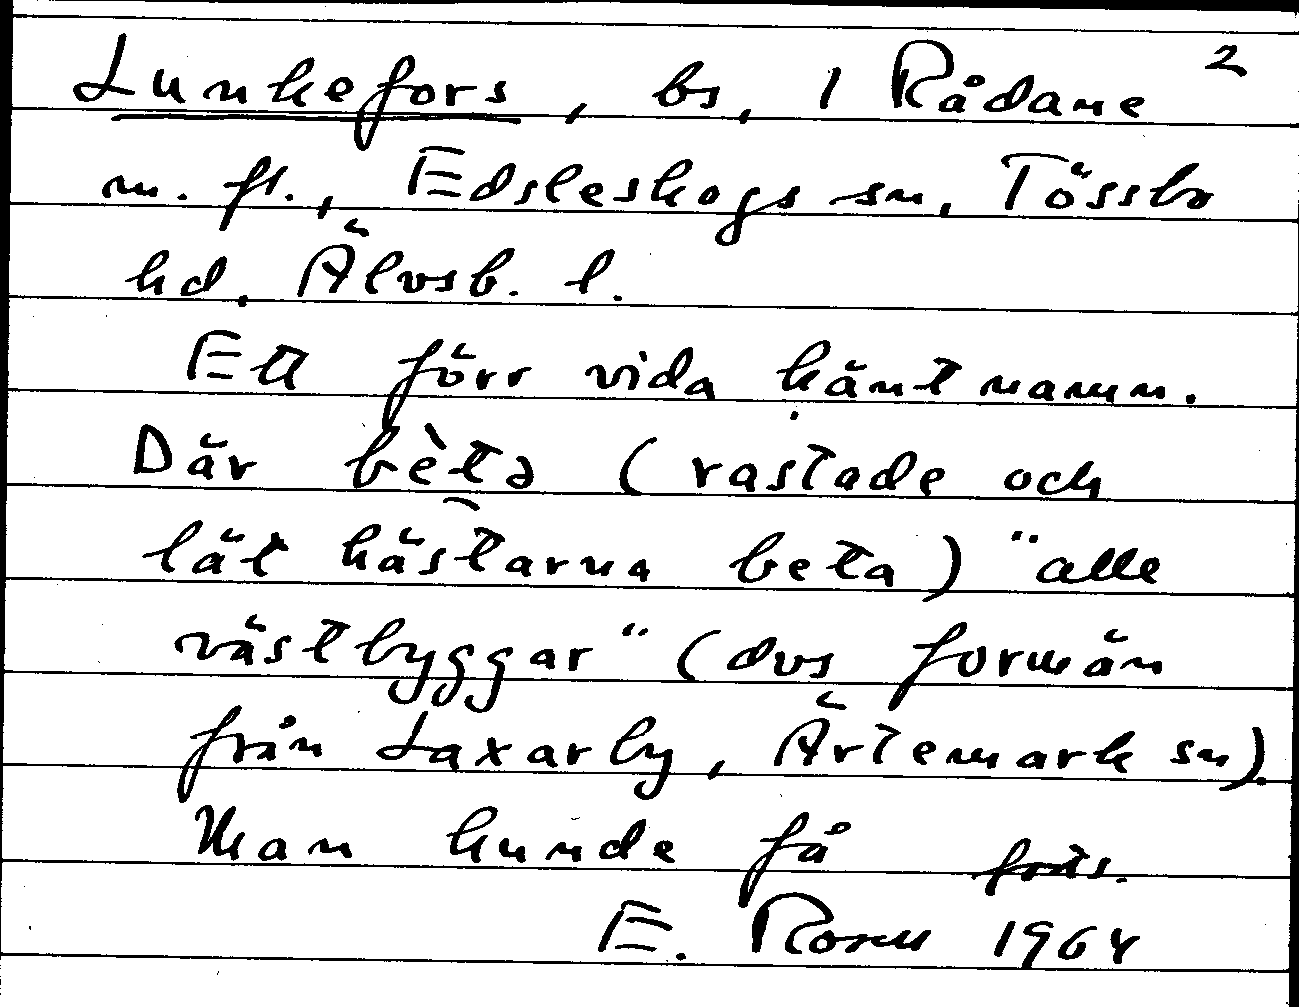 Lunkefors, bs, 1 Rådane 2
m. fl., Edsleskogs sn, Tössbo
hd, Älvsb. l.
Ett förr vida känt namn.
Där bètə (rastade och
lät hästarna beta) "alle
västbyggar" (dvs formän
från Laxarby, Ärtemark sn).
Man kunde få forts.
E. Rosell 1964